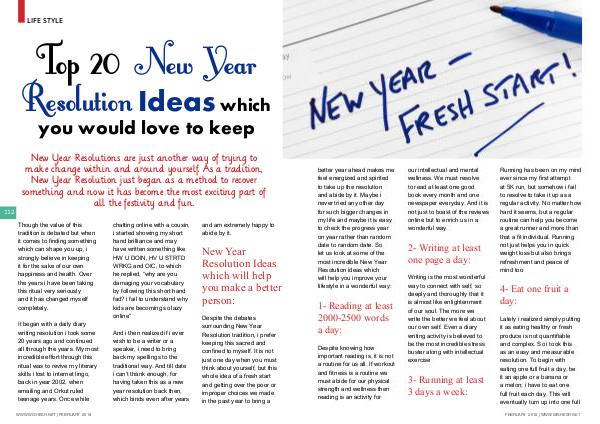 LIFE STYLE
Top 20 New Year
Resolution Ideas which
you would love to keep
New Year Resolutions are just another way of trying to
make change within and around yourself. As a tradition,
New Year Resolution just began as a method to recover
something and now it has become the most exciting part of
all the festivity and fun.
112
Though the value of this
tradition is debated but when
it comes to finding something
which can shape you up, i
strongly believe in keeping
it for the sake of our own
happiness and health. Over
the years i have been taking
this ritual very seriously
and it has changed myself
completely.
It began with a daily diary
writing resolution i took some
20 years ago and continued
all through the years. My most
incredible effort through this
ritual was to revive my literary
skills i lost to internet lingo,
back in year 2002, when
emailing and Orkut ruled
teenage years. Once while
chatting online with a cousin,
i started showing my short
hand brilliance and may
have written something like
HW U DOIN, HV U STRTD
WRKG and OIC, to which
he replied, "why are you
damaging your vocabulary
by following this short hand
fad? i fail to understand why
kids are becoming so lazy
online"
And i then realized if i ever
wish to be a writer or a
speaker, i need to bring
back my spellings to the
traditional way. And till date
i can't thank enough, for
having taken this as a new
year resolution back then,
which binds even after years
and am extremely happy to
abide by it.
New Year
Resolution Ideas
which will help
you make a better
person:
Despite the debates
surrounding New Year
Resolution tradition, i prefer
keeping this sacred and
confined to myself. It is not
just one day when you must
think about yourself, but this
whole idea of a fresh start
and getting over the poor or
improper choices we made
in the past year to bring a
NEW YEAR -
FRESH START!
better year ahead makes me
feel energized and spirited
to take up the resolution
and abide by it. Maybe i
never tried any other day
for such bigger changes in
my life and maybe it is easy
to check the progress year
on year rather than random
date to random date. So
let us look at some of the
most incredible New Year
Resolution ideas which
will help you improve your
lifestyle in a wonderful way:
1- Reading at least
2000-2500 words
a day:
Despite knowing how
important reading is, it is not
a routine for us all. If workout
and fitness is a routine we
must abide for our physical
strength and wellness than
reading is an activity for
our intellectual and mental
wellness. We must resolve
to read at least one good
book every month and one
newspaper everyday. And it is
not just to boast of the reviews
online but to enrich us in a
wonderful way.
2- Writing at least
one page a day:
Writing is the most wonderful
way to connect with self, so
deeply and thoroughly that it
is almost like enlightenment
of our soul. The more we
write the better we feel about
our own self. Even a diary
writing activity is believed to
be the most incredible stress
buster along with intellectual
exercise
3- Running at least
3 days a week:
Running has been on my mind
ever since my first attempt
at 5K run, but somehow i fail
to resolve to take it up as a
regular activity. No matter how
hard it seems, but a regular
routine can help you become
a great runner and more than
that a fit individual. Running
not just helps you in quick
weight loss but also brings
refreshment and peace of
mind too
4- Eat one fruit a
day:
Lately i realized simply putting
it as eating healthy or fresh
produce is not quantifiable
and complex. So i took this
as an easy and measurable
resolution. To begin with
eating one full fruit a day, be
it an apple or a banana or
a melon; i have to eat one
full fruit each day. This will
eventually turn up into one full
WWW.WISHESH.NET | FEBRUARY 2018
FEBRUARY 2018 | WWW.WISHESH.NET